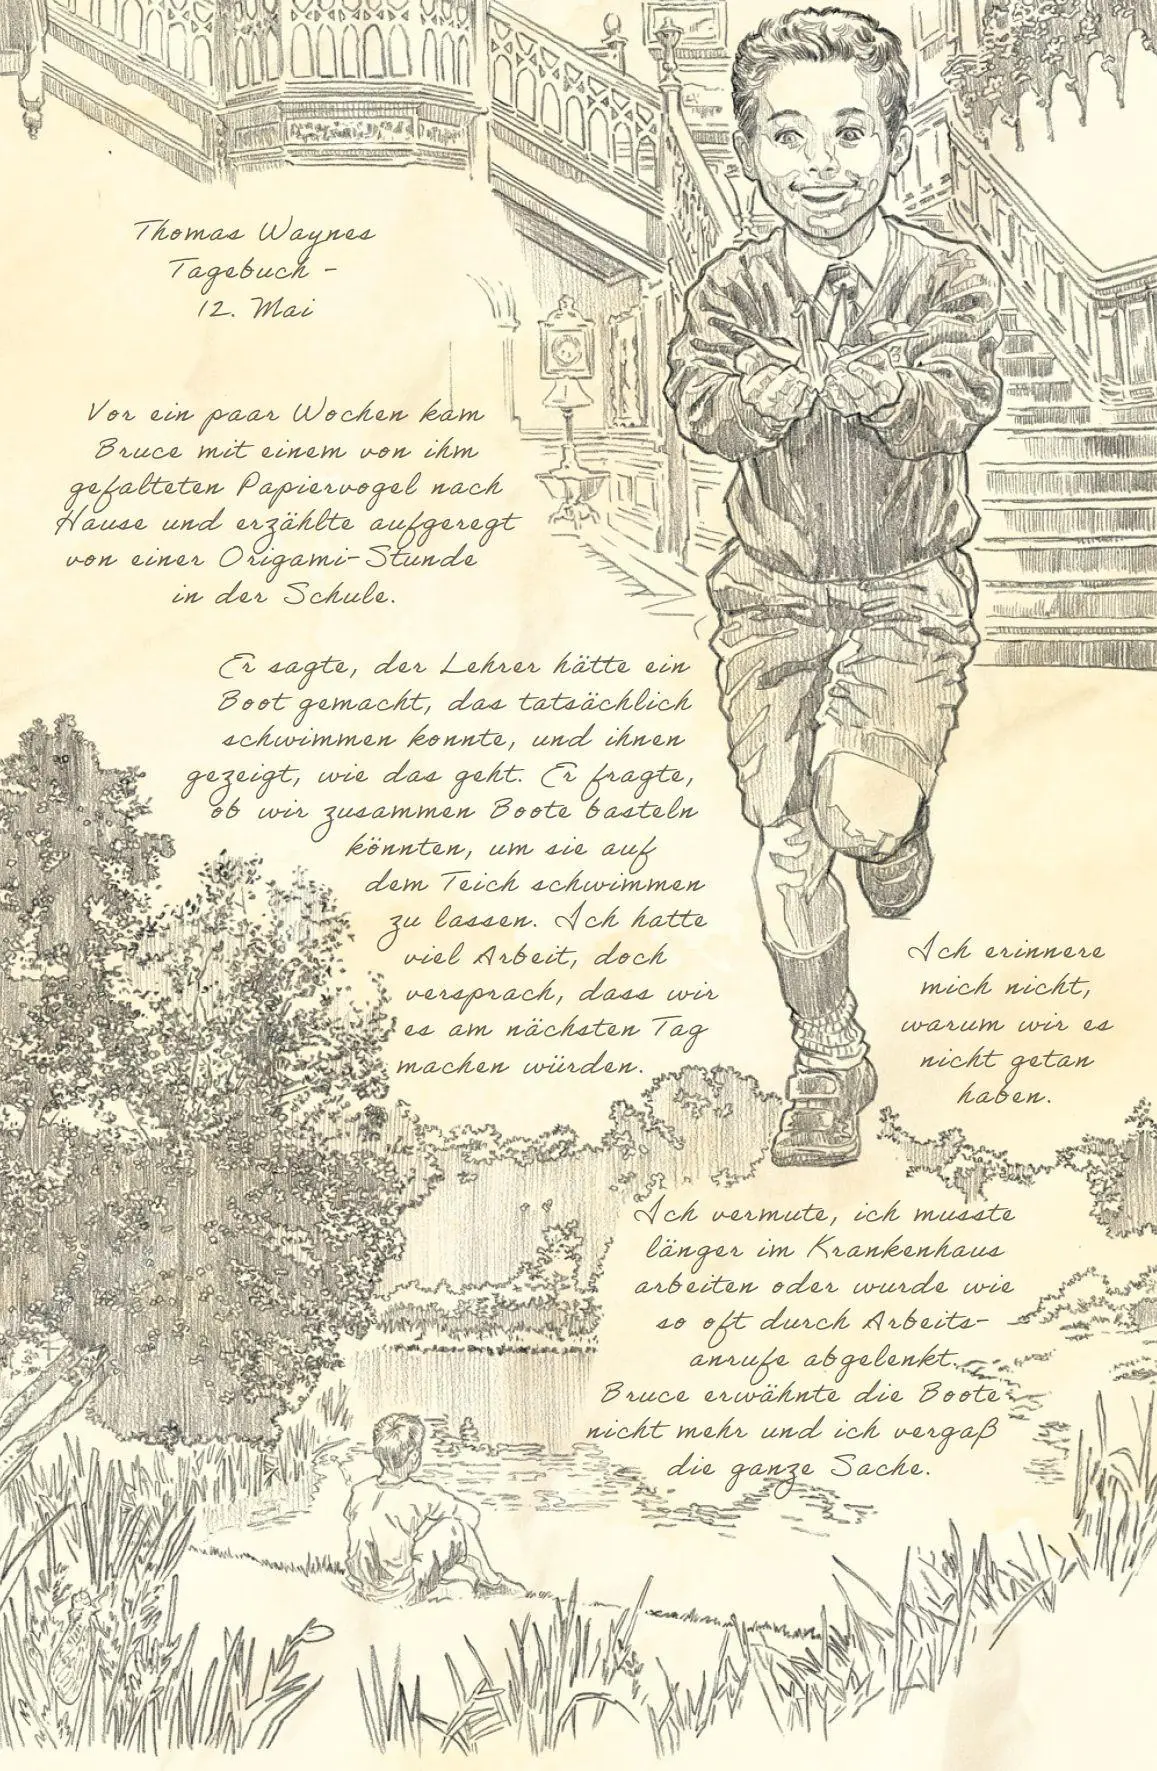 Thomas Waynes
Tagebuch -
12. Mai
Vor ein paar Wochen kam
Bruce mit einem von ihm
gefalteten Papiervogel nach
Hause und erzählte aufgeregt
von einer Origami-Stunde
in der Schule.
Er sagte, der Lehrer hätte ein
Boot gemacht, das tatsächlich
schwimmen konnte, und ihnen
gezeigt, wie das geht. Er fragte,
ob wir zusammen Boote basteln
könnten, um sie auf
dem Teich schwimmen
zu lassen. Ich hatte
viel Arbeit, doch
versprach, dass wir
es am nächsten Tag
machen würden.
Ich erinnere
mich nicht,
warum wir es
nicht getan
haben.
Ich vermute, ich musste
länger im Krankenhaus
arbeiten oder wurde wie
so oft durch Arbeits-
anrufe abgelenkt.
Bruce erwähnte die Boote
nicht mehr und ich vergaß
die ganze Sache.